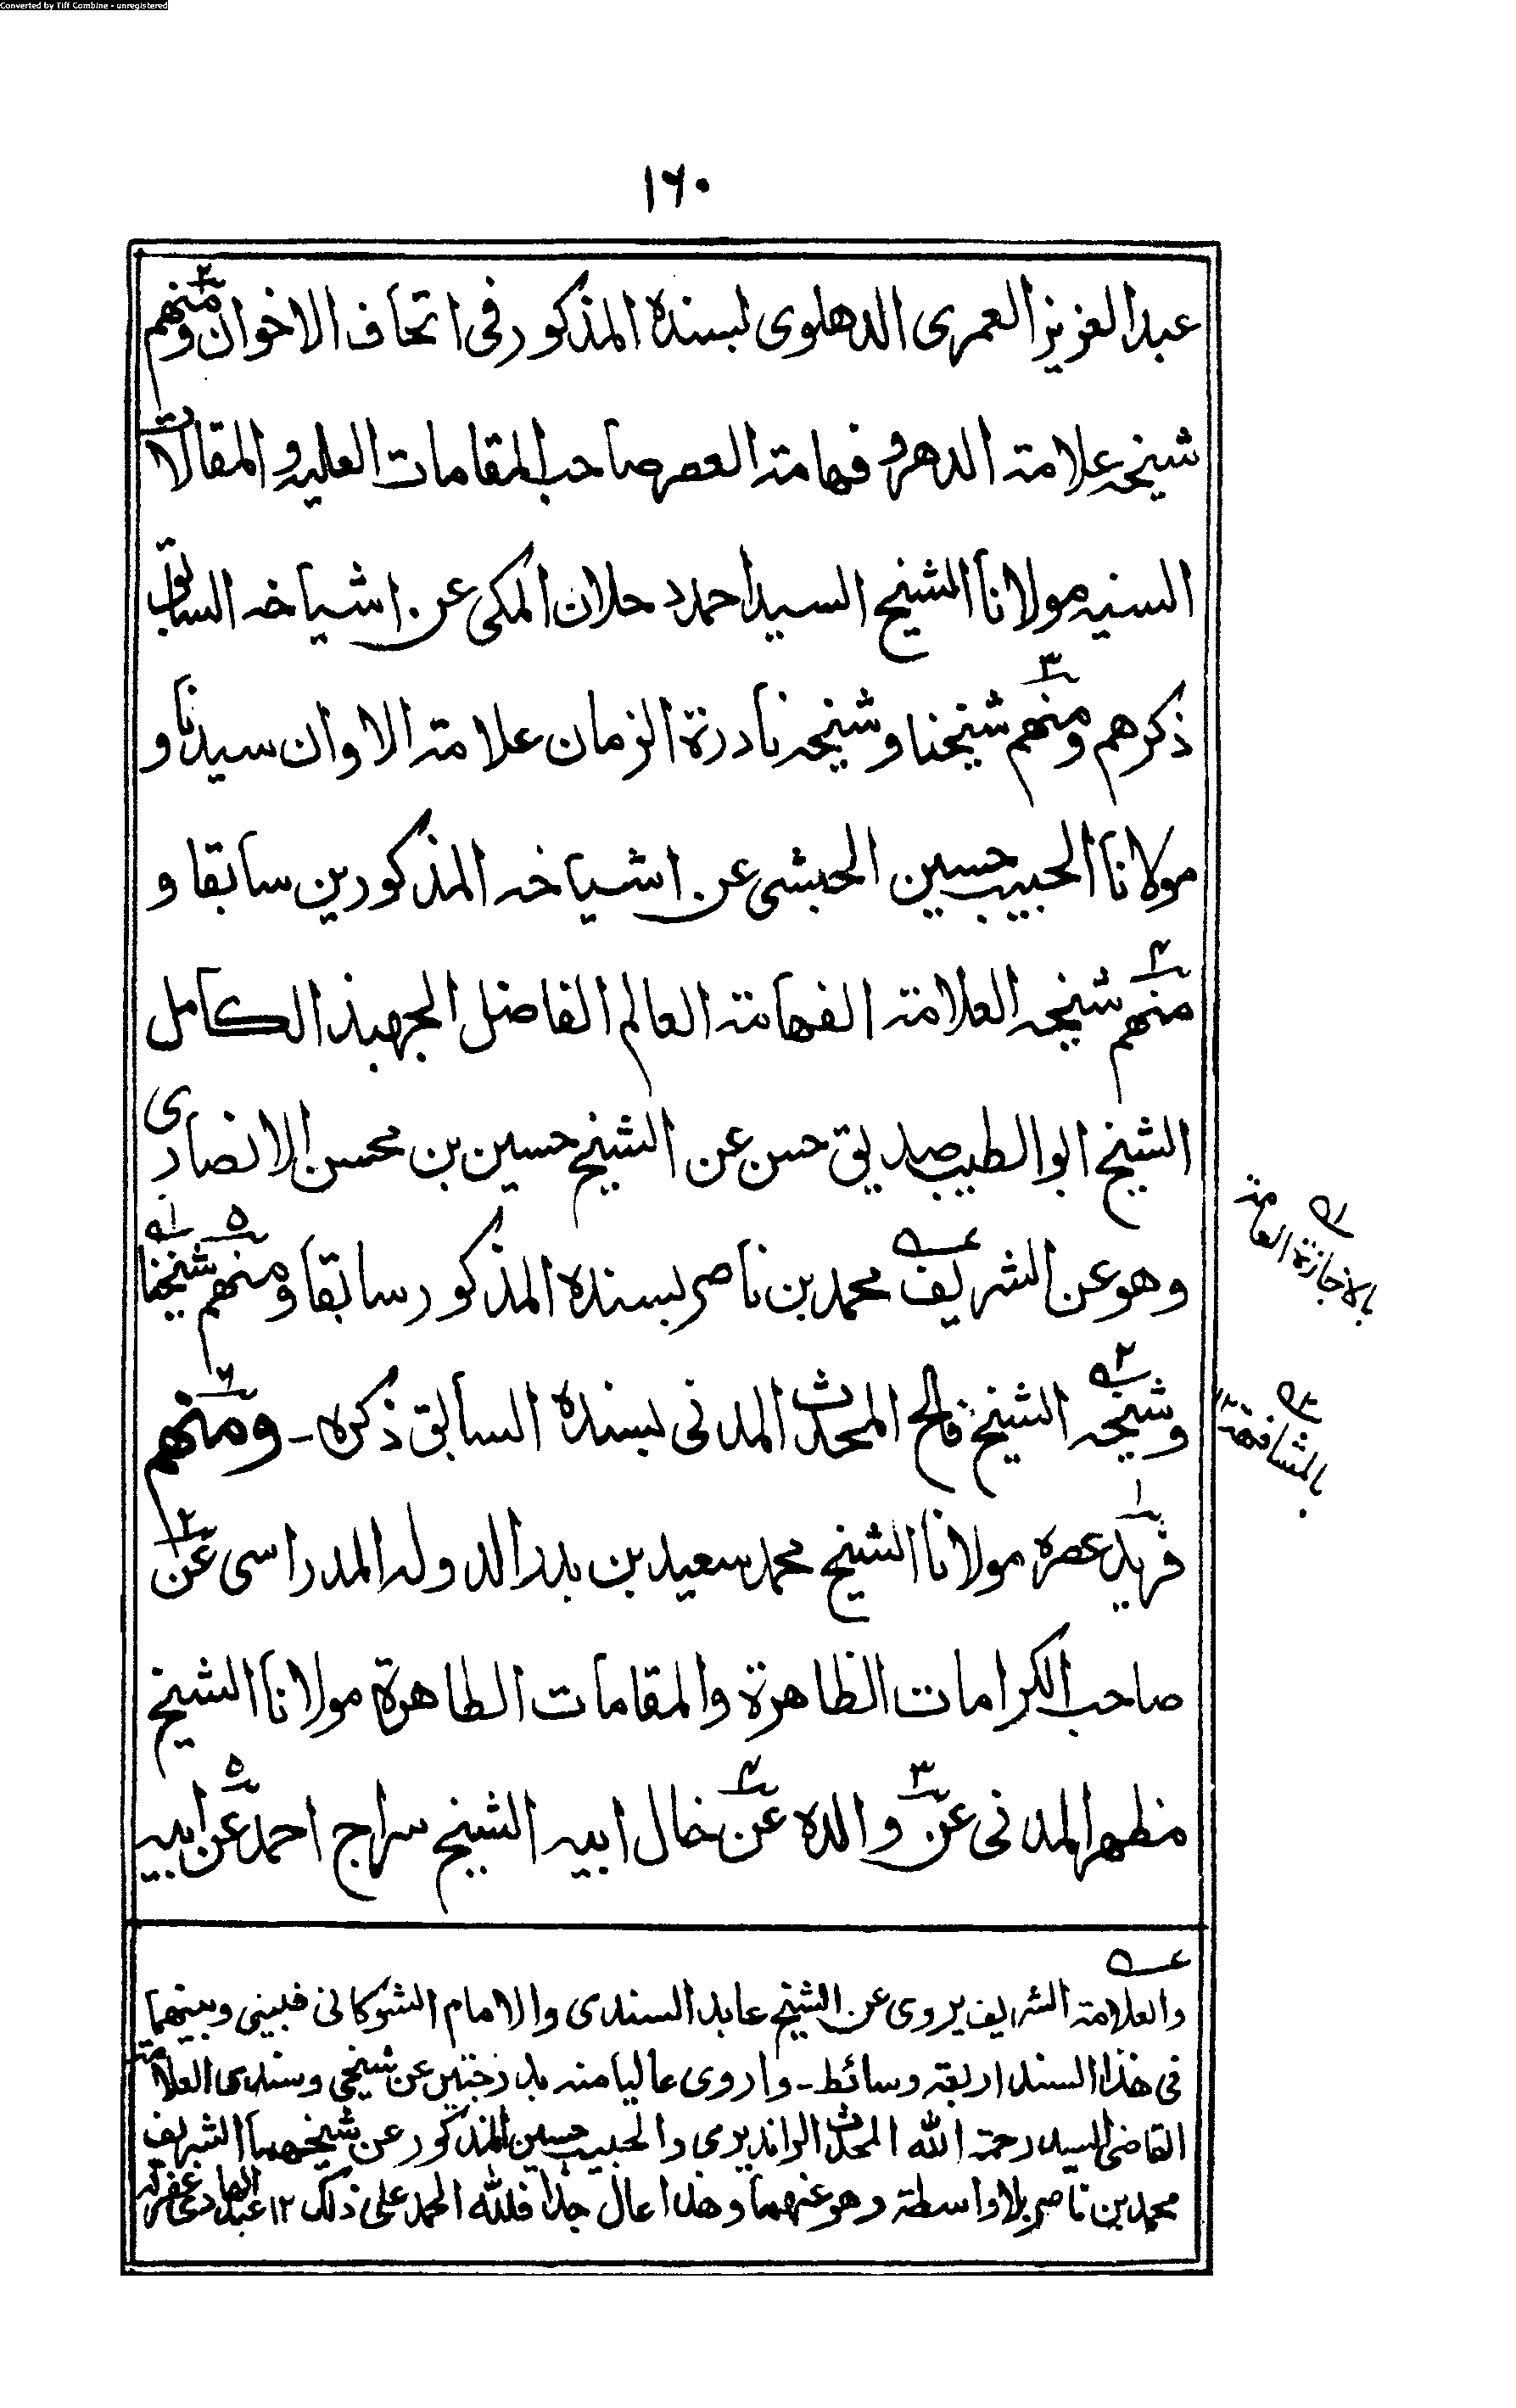 Converted by Tiff Combine - unregistered
١٦٠
عبد العزيز العمرى الدهلوى بسنده المذكور فى اتحاف الاخوان ومنهم٢
شيخه علامة الدهر و فهامة العصر صاحب المقامات العليه و المقالات
السنيه مولانا الشيخ السيد احمد دحلان المكى عن اشياخه السابق
ذكرهم ومنهم٣ شيخنا وشيخه نادرة الزمان علامة الاوان سيدنا و
مولانا الحبيب حسين الحبشى عن اشياخه المذكورين سابقا و
منهم٤ شيخه العلامة الفهامة العالم الفاضل الجهبذ الكامل
الشيخ ابو الطيب صديق حسن عن الشيخ حسين بن محسن الانصارى
وهو عن الشريف عه محمد بن ناصر بسنده المذكور سابقا ومنهم٥ شيخنا١ه
وشيخه٢ه الشيخ فالح المحدث المدنى بسنده السابق ذكره - ومنهم٦
فريد١ عصره مولانا الشيخ محمد سعيد بن بدر الدوله المدراسى عن٢
صاحب الكرامات الظاهرة والمقامات الطاهرة مولانا الشيخ
مظهر المدنى عن٣ والده عن٤ خال ابيه الشيخ سراج احمد عن٥ ابيه
١ه بالاجازة العامة
٢ه بالمشافهة
عه
والعلامة الشريف يروى عن الشيخ عابد السندى والامام الشوكانى فبينى وبينهما
فى هذا السند اربعة وسائط - واروى عاليا منه بدرجتين عن شيخى وسندى العلامة
القاضى السيد رحمة الله المحدث الرانديرى والحبيب حسين المذكور عن شيخهما الشريف
محمد بن ناصر بلا واسطة وهو عنهما وهذا عال جدا فلله الحمد على ذلك ١٢ عبد الهادى غفر له